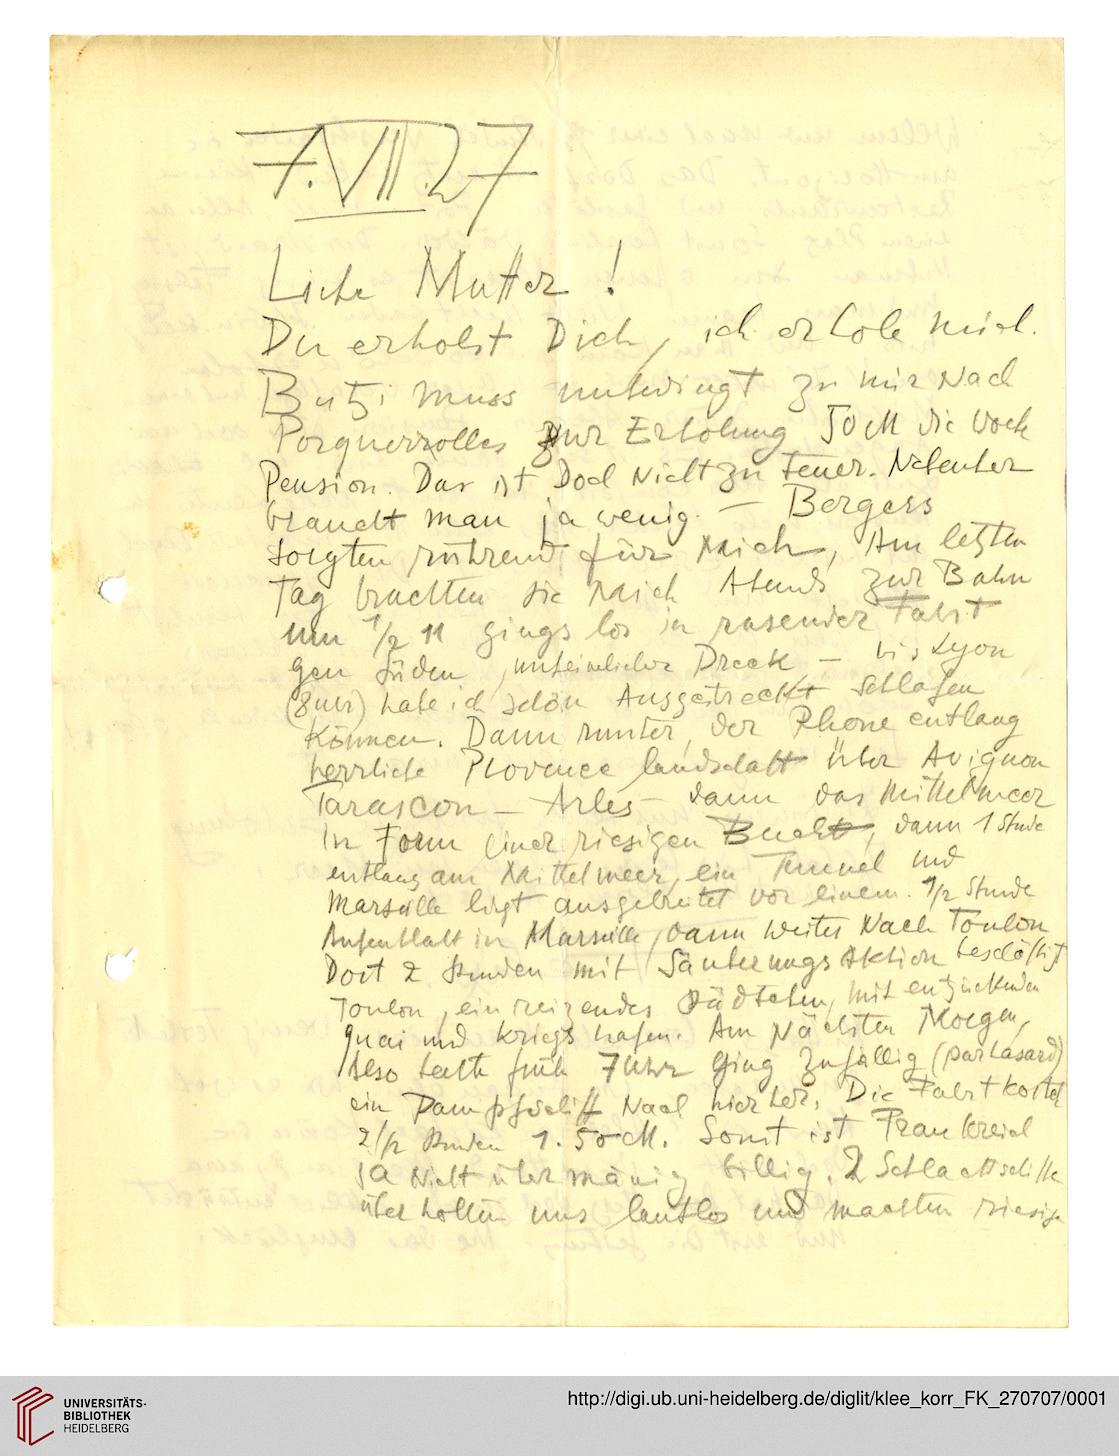 7.VII.27
Liebe Mutter!
Du erholst Dich, ich erhole mich.
Butzi muss unbedingt zu mir nach
Porquerrolles zur Erholung 50 M die Woche
Pension. Das ist doch nicht zu teuer. Nebenher
braucht man ja wenig. — Bergers
sorgten rührend für mich, Am letzten
Tag brachten sie mich Abends zur Bahn
um 1/2 11 gings los in rasender Fahrt
gen Süden, unheimlicher Dreck — bis Lyon
(8 Uhr) habe ich schön Ausgestreckt schlafen
können. Dann runter, der Rhone entlang
herrliche Provence landschaft über Avignon
Tarascon — Arles — dann das Mittelmeer
in Form einer riesigen Bucht, dann 1 Stunde
entlang am Mittelmeer, ein Tunnel und
Marseille liegt ausgebreitet vor einem. 1/2 Stunde
Aufenthalt in Marseille, dann weiter nach Toulon
Dort 2 Stunden mit Säuberungs Aktion beschäftigt
Toulon, ein reizendes Städtchen, mit entzückenden
quai und Kriegshafen. Am nächsten Morgen,
Also heute früh 7 Uhr ging zufällig (par hasard)
ein Dampfschiff nach hierher. Die Fahrt kostet
2 1/2 Stunden 1.50 M. Sonst ist Frankreich
ja nicht übermässig billig. 2 Schlachtschiffe
überholten uns lautlos und machten riesige
UNIVERSITÄTS-
BIBLIOTHEK
HEIDELBERG
http://digi.ub.uni-heidelberg.de/diglit/klee_korr_FK_270707/0001